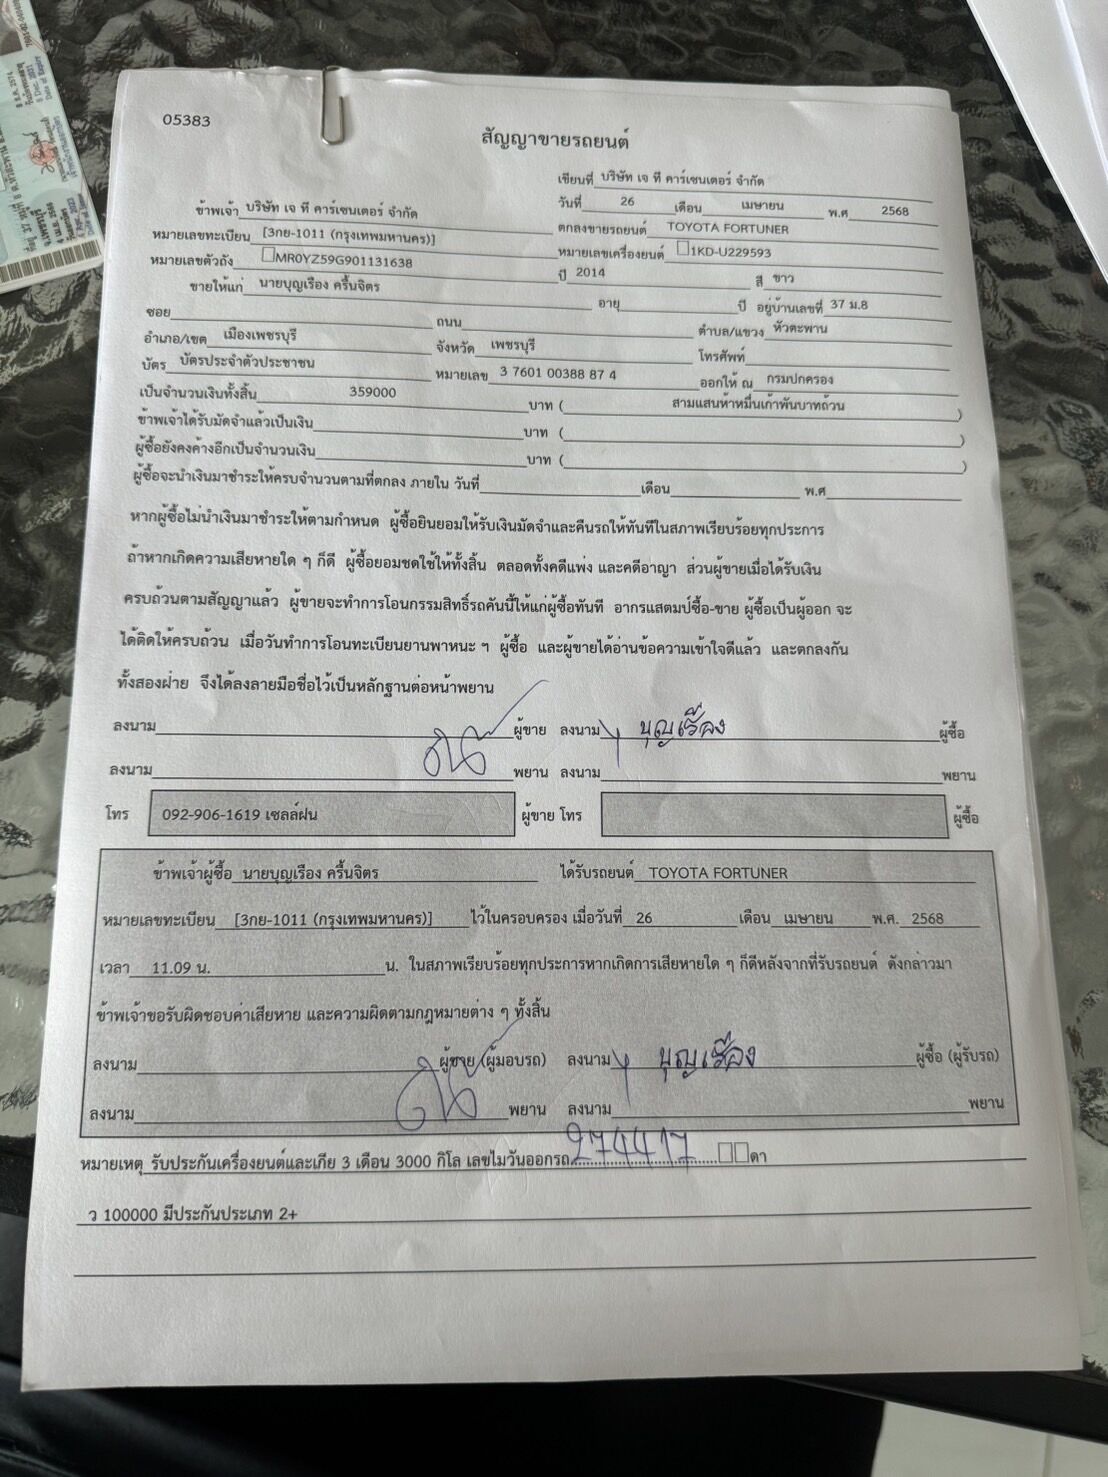 05383
สัญญาขายรถยนต์
เขียนที่ บริษัท เจ ที คาร์เซนเตอร์ จำกัด
ข้าพเจ้า บริษัท เจ ที คาร์เซนเตอร์ จำกัด วันที่ 26 เดือน เมษายน พ.ศ 2568
หมายเลขทะเบียน [3กย-1011 (กรุงเทพมหานคร)] ตกลงขายรถยนต์ TOYOTA FORTUNER
หมายเลขตัวถัง □MR0YZ59G901131638 หมายเลขเครื่องยนต์ □1KD-U229593
ปี 2014 สี ขาว
ขายให้แก่ นายบุญเรือง ครื้นจิตร อายุ ปี อยู่บ้านเลขที่ 37 ม.8
ซอย ถนน ตำบล/แขวง หัวตะพาน
อำเภอ/เขต เมืองเพชรบุรี จังหวัด เพชรบุรี โทรศัพท์
บัตร บัตรประจำตัวประชาชน หมายเลข 3 7601 00388 87 4 ออกให้ ณ กรมปกครอง
เป็นจำนวนเงินทั้งสิ้น 359000 บาท ( สามแสนห้าหมื่นเก้าพันบาทถ้วน )
ข้าพเจ้าได้รับมัดจำแล้วเป็นเงิน บาท ( )
ผู้ซื้อยังคงค้างอีกเป็นจำนวนเงิน บาท ( )
ผู้ซื้อจะนำเงินมาชำระให้ครบจำนวนตามที่ตกลง ภายใน วันที่ เดือน พ.ศ
หากผู้ซื้อไม่นำเงินมาชำระให้ตามกำหนด ผู้ซื้อยินยอมให้รับเงินมัดจำและคืนรถให้ทันทีในสภาพเรียบร้อยทุกประการ
ถ้าหากเกิดความเสียหายใด ๆ ก็ดี ผู้ซื้อยอมชดใช้ให้ทั้งสิ้น ตลอดทั้งคดีแพ่ง และคดีอาญา ส่วนผู้ขายเมื่อได้รับเงิน
ครบถ้วนตามสัญญาแล้ว ผู้ขายจะทำการโอนกรรมสิทธิ์รถคันนี้ให้แก่ผู้ซื้อทันที อากรแสตมป์ซื้อ-ขาย ผู้ซื้อเป็นผู้ออก จะ
ได้ติดให้ครบถ้วน เมื่อวันทำการโอนทะเบียนยานพาหนะ ฯ ผู้ซื้อ และผู้ขายได้อ่านข้อความเข้าใจดีแล้ว และตกลงกัน
ทั้งสองฝ่าย จึงได้ลงลายมือชื่อไว้เป็นหลักฐานต่อหน้าพยาน
ลงนาม ผู้ขาย ลงนาม บุญเรือง ผู้ซื้อ
ลงนาม พยาน ลงนาม พยาน
โทร 092-906-1619 เซลล์ฝน ผู้ขาย โทร ผู้ซื้อ
ข้าพเจ้าผู้ซื้อ นายบุญเรือง ครื้นจิตร ได้รับรถยนต์ TOYOTA FORTUNER
หมายเลขทะเบียน [3กย-1011 (กรุงเทพมหานคร)] ไว้ในครอบครอง เมื่อวันที่ 26 เดือน เมษายน พ.ศ. 2568
เวลา 11.09 น. น. ในสภาพเรียบร้อยทุกประการหากเกิดการเสียหายใด ๆ ก็ดีหลังจากที่รับรถยนต์ ดังกล่าวมา
ข้าพเจ้าขอรับผิดชอบค่าเสียหาย และความผิดตามกฎหมายต่าง ๆ ทั้งสิ้น
ลงนาม ผู้ขาย (ผู้มอบรถ) ลงนาม บุญเรือง ผู้ซื้อ (ผู้รับรถ)
ลงนาม พยาน ลงนาม พยาน
หมายเหตุ รับประกันเครื่องยนต์และเกีย 3 เดือน 3000 กิโล เลขไมวันออกรถ 274417 □□ดา
ว 100000 มีประกันประเภท 2+